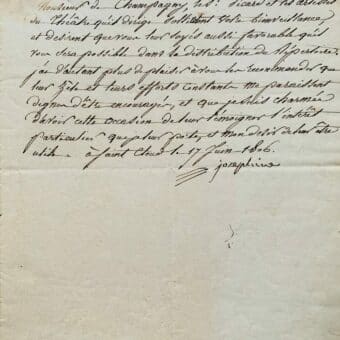 Monsieur de Champagny, Mr. Picard et les artistes
du Théatre qu'il dirige sollicitent votre bienveillance,
et désirent que vous leur soyés aussi favorable qu'il
vous sera possible dans la distribution de
j'ai d'autant plus de plaisir à vous les recommander que
leur zèle et leurs efforts constant me paraissent
dignes d'être encouragés, et que je suis charmée
d'avoir cette occasion de leur témoigner l'intérêt
particulier que je leur porte, et mon désir de leur être
utile. à Saint Cloud le 17 Juin 1806.
Josephine